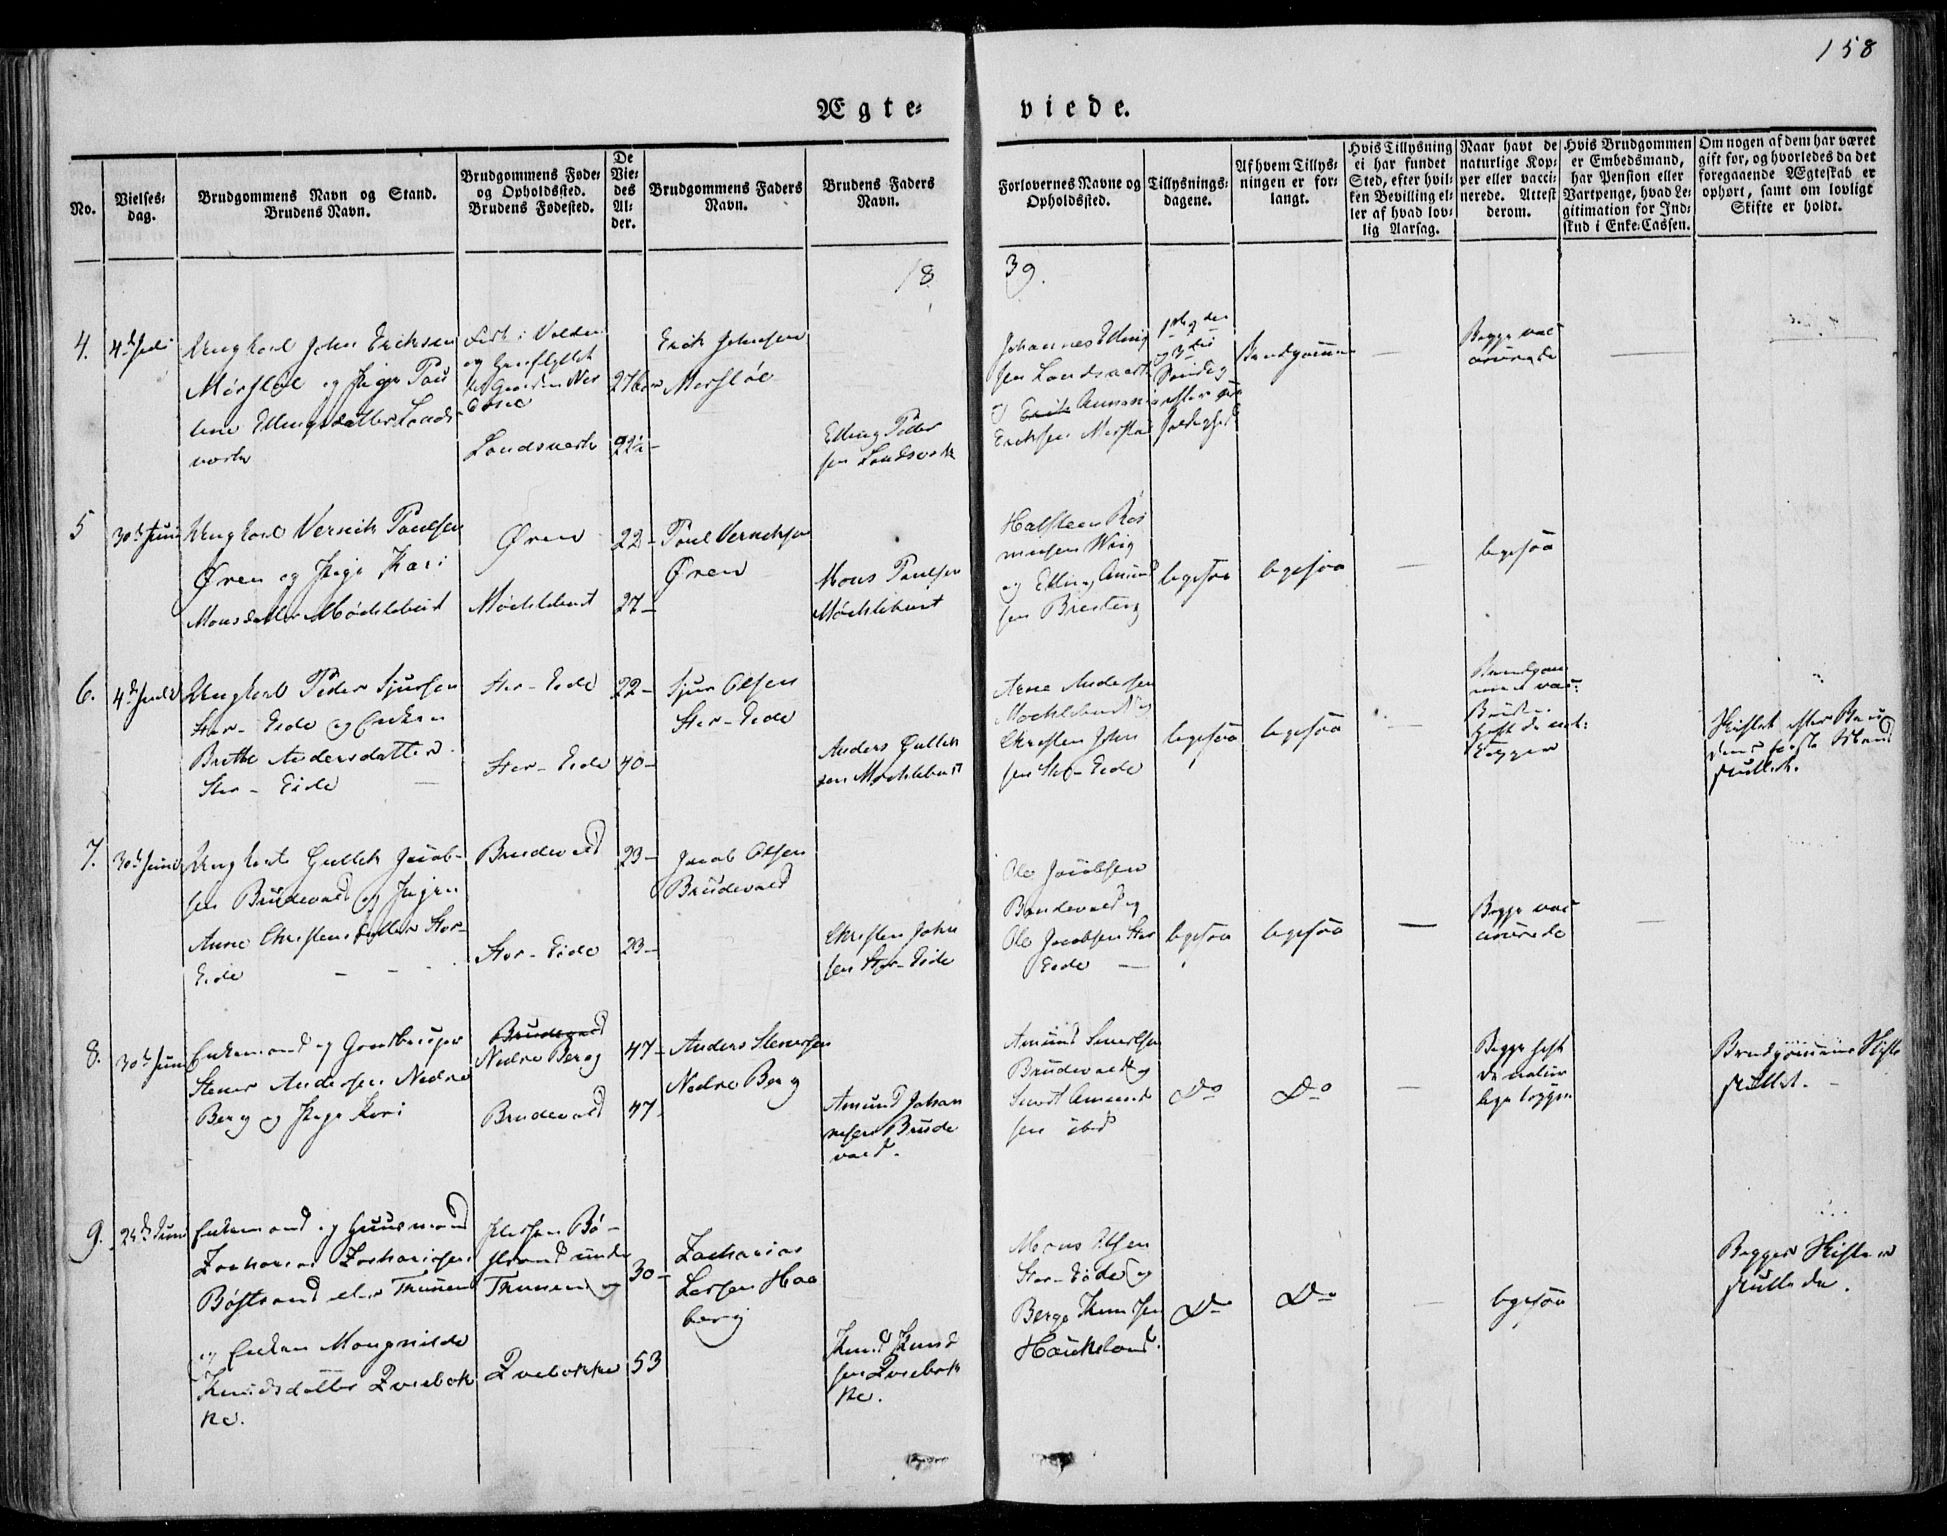 158
Ægte=
viede.
No.
Vielses=
dag.
Brudgommens Navn og Stand.
Brudens Navn.
Brudgommens Føde=
og Opholdssted.
Brudens Fødested.
De
Vie=
des
Al=
der.
Brudgommens Faders
Navn.
Brudens Faders
Navn.
Forlovernes Navne og
Opholdssted.
Tillysnings=
dagene.
Af hvem Tillys=
ningen er for=
langt.
Hvis Tillysning
ei har fundet
Sted, efter hvil=
ken Bevilling el=
ler af hvad lov=
lig Aarsag.
Naar havt de
naturlige Kop=
per eller vacci=
nerede. Attest
derom.
Hvis Brudgommen
er Embedsmand,
har Pension eller
Vartpenge, hvad Le=
gitimation for Ind=
skud i Enke=Cassen.
Om nogen af dem har været
gift før, og hvorledes da det
foregaaende Ægteskab er
ophørt, samt om lovligt
Skifte er holdt.
18
39.
4.
Ungkarl John Ericksen
og Pige Pau
line Ellingsdatter Lands
Landsverk
22½
Elling Peder
sen Landsverk
Johannes Elling
sen Landsverk
Brudgommen
Begge vac
cinerede
5
30te Juni
Ungkarl Vernik Paulsen
Øren og Pige Kari
Monsdatter Möchlebust
Øren
Möchlebust
22
27
Poul Verniksen
Øren
Mons Paulsen
Möchlebust
Halsteen Ras
musen
og Elling Amund
sen
ligesaa
ligesaa
ligesaa
6.
Ungkarl Peder Sjursen
Stor-Eide og Enken
Brithe Andersdatter
Stor-Eide
Stor-Eide
Stor-Eide
22
40
Sjur Olsen
Stor-Eide
Anders Gullik
sen Möchlebust
Arne Andersen
Möchlebust og
Christen John
sen Stor-Eide
ligesaa
ligesaa
Brudgom
men vac:
Bruden
havt de nat:
Kopper
Skiftet efter Bru
dens første Mand
sluttet.
7.
30te Juni
Ungkarl Gullik Jacob-
sen Brudevold og Pigen
Anne Christensdatter Stor-
Eide
Brudevold
Stor-Eide
23
23
Jacob Olsen
Brudevold
Christen John
sen Stor-Eide
Ole Jacobsen
Brudevold og
Ole Jacobsen Stor
Eide
ligesaa
ligesaa
Begge vac
cinerede
8.
30te Juni
Enkemand og Gaardbruger
Stener Andersen Nedre
Berg og Pige Kari
Brudevold
Nedre Berg
Brudevold
47
47
Anders Stenersen
Nedre Berg
Amund Johan
nesen Brude
vold.
Amund Sivertsen
Brudevold og
Sivert Amund
sen ibid
Do
Do
Begge havt
de natur
lige Kopper
Brudgommens Skifte
sluttet.
9.
Enkemand og Huusmand
Zacharias Zachariasen
Böstrand eller Trunen
og Enken Mangnilde
Knudsdatter Qviebak
ke.
Böstrand under
Trunen og
Qviebakke
30
53
Zacharias
Larsen Haa
berg
Knud Knud
sen Qviebak
ke.
Mons Olsen
Stor-Eide og
Berge Knudsen
Haukeland.
Do
Do
ligesaa
Begges Skifter
sluttede.